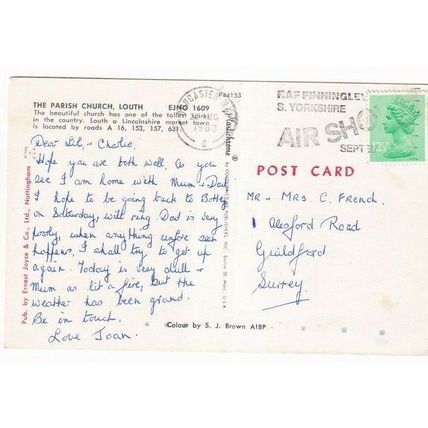 P44153
THE PARISH CHURCH, LOUTH EJNG 1609
The beautiful church has one of the tallest spires
in the country. Louth a Lincolnshire market town
is located by roads A 16, 153, 157, 631.
Dear Lil, - Charlie.
Hope you are both well. As you
see I am home with Mum - Dad
I hope to be going back to
on Saturday, will ring. Dad is very
poorly, when anything
happens. I shall try to get up
again. Today is very dull -
Mum as lit a fire, but the
weather has been grand.
Be in touch.
Love Joan.
Pub. by Ernest Joyce & Co. Ltd., Nottingham
Plastichrome ®
Colour by S. J. Brown AIBP
1983
RAF FINNINGLEY
S. YORKSHIRE
AIR SHOW
SEPT
12½
POST CARD
Mr - Mrs C. French.
1 Alesford Road
Guildford
Surrey.